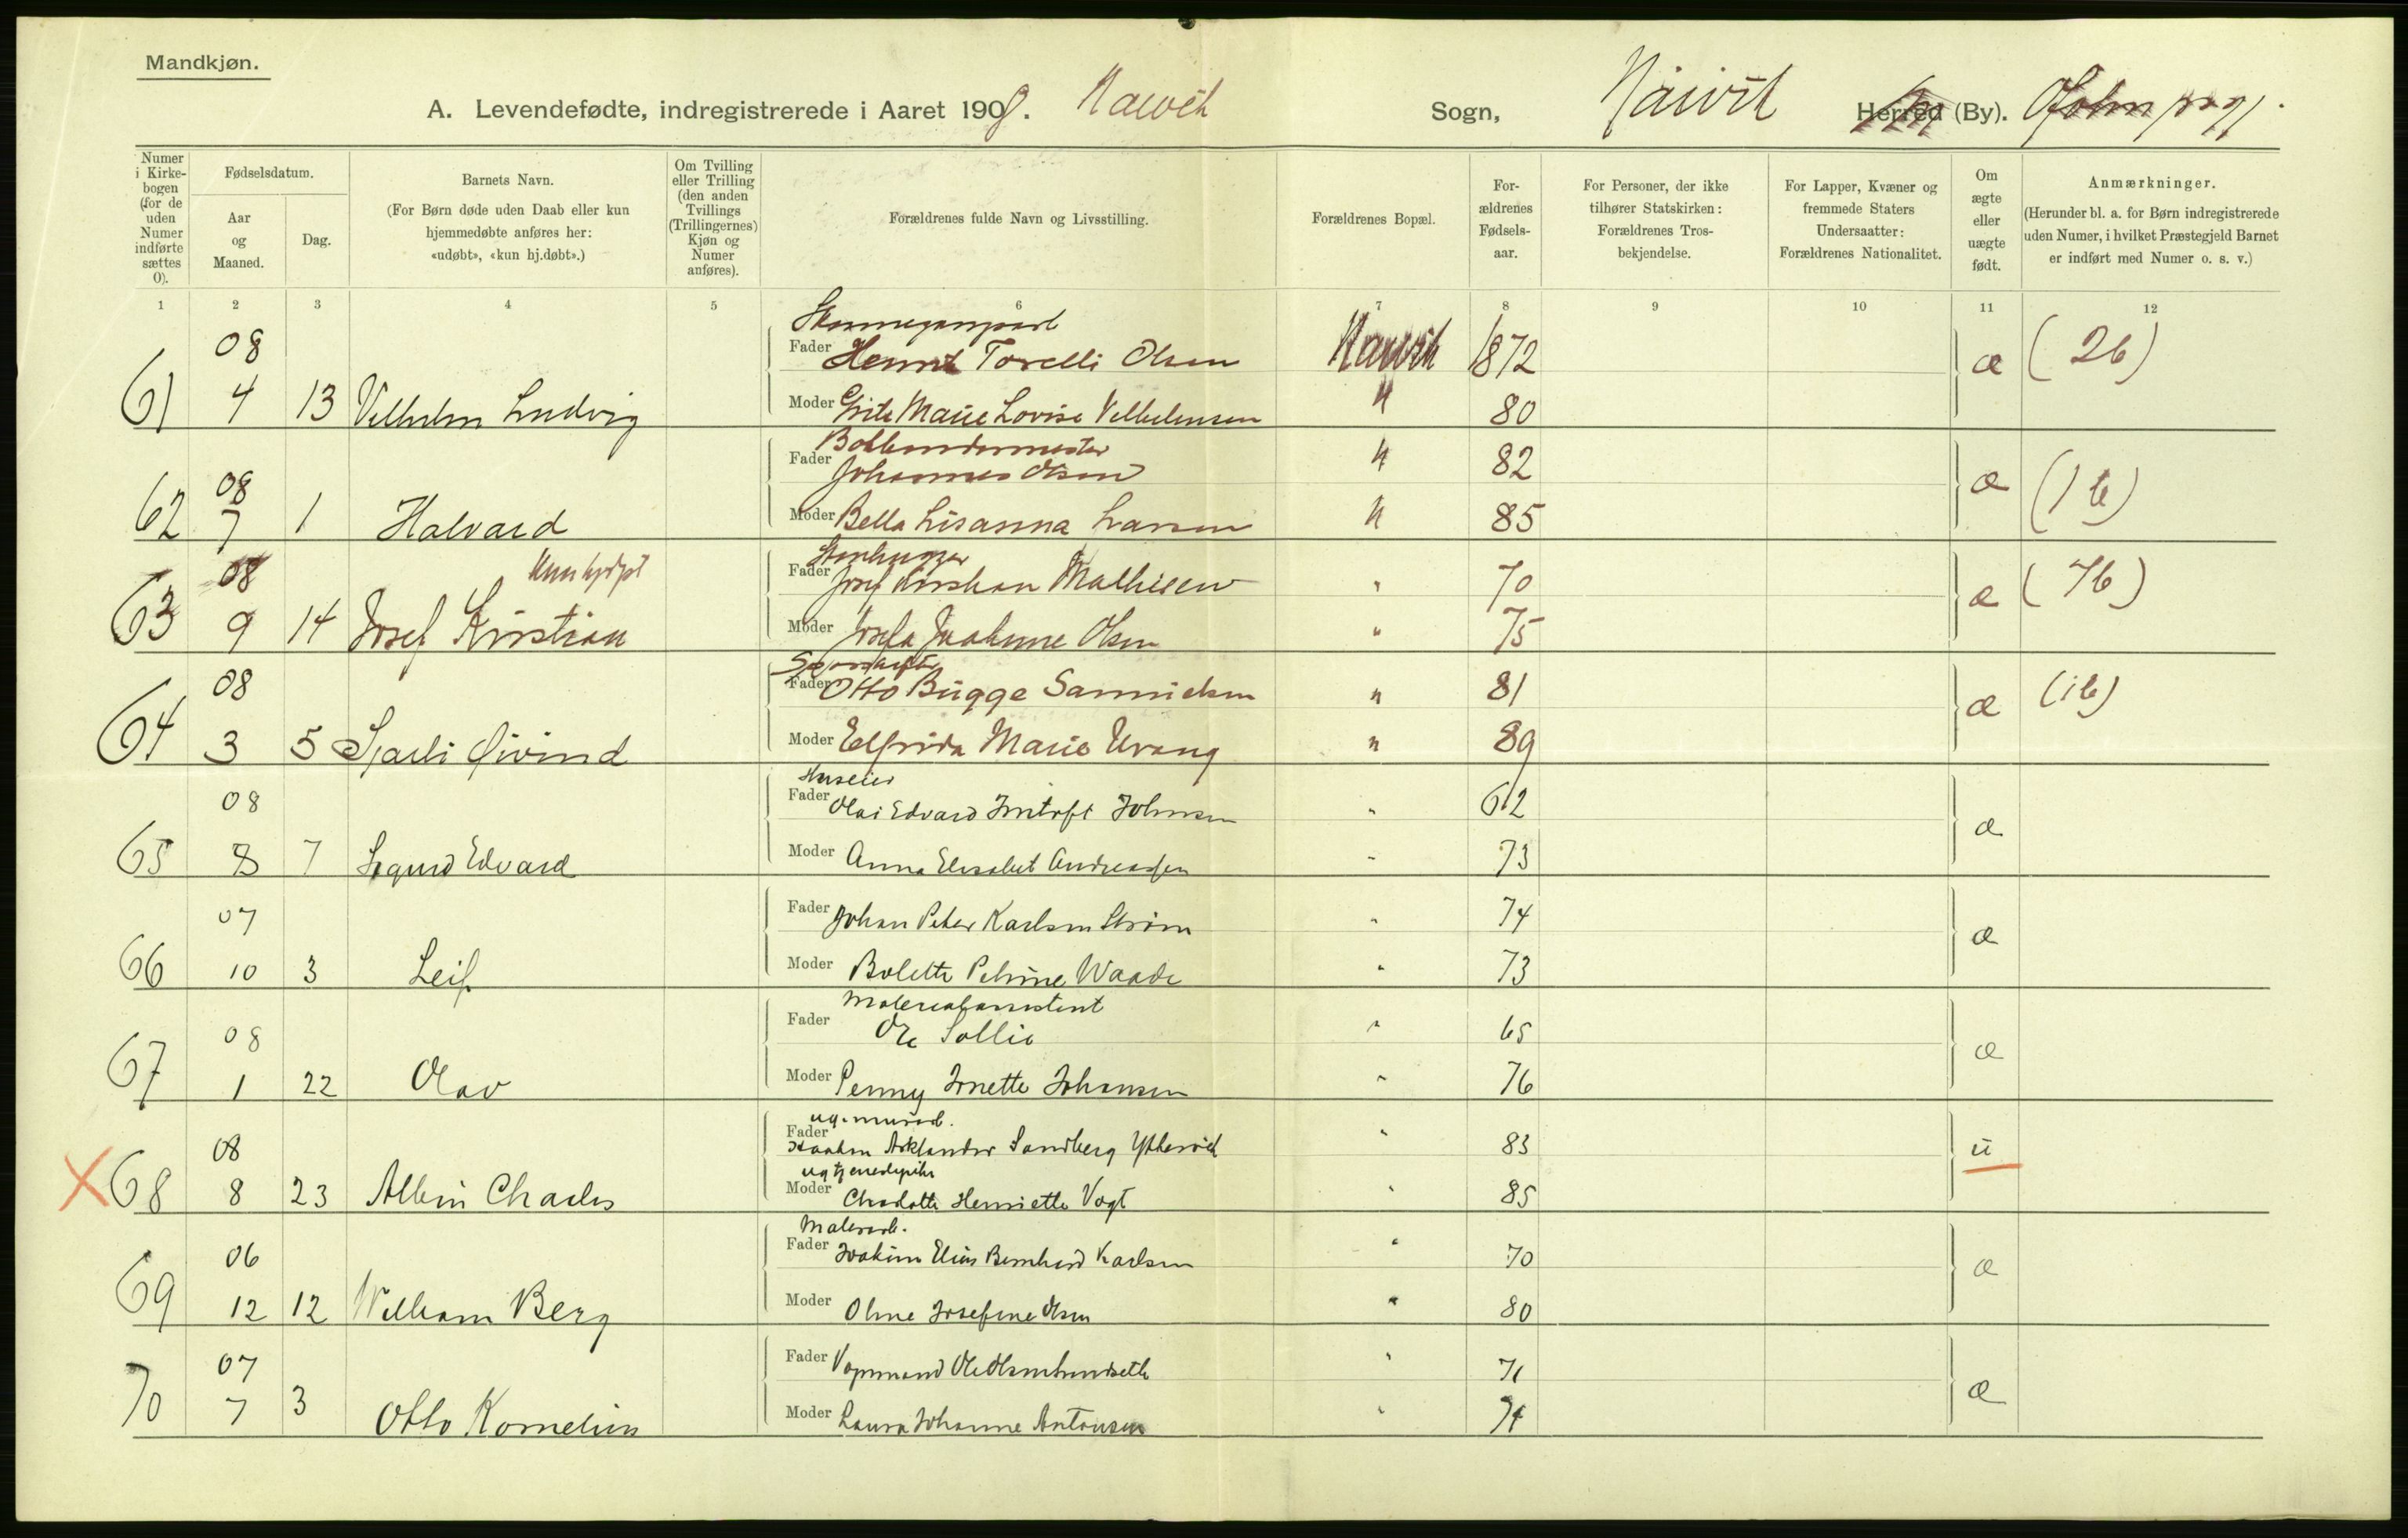 Mandkjøn.
A. Levendefødte, indregistrerede i Aaret 1908. Narvik Sogn, Narvik Herred (By). Ofoten prgj.
Numer i Kirkebogen (for de uden Numer indførte sættes 0).
Fødselsdatum.
Aar og Maaned.
Dag.
Barnets Navn.
(For Børn døde uden Daab eller kun hjemmedøbte anføres her: «udøbt», «kun hj.døbt».)
Om Tvilling eller Trilling (den anden Tvillings (Trillingernes) Kjøn og Numer anføres).
Forældrenes fulde Navn og Livsstilling.
Forældrenes Bopæl.
Forældrenes Fødselsaar.
For Personer, der ikke tilhører Statskirken: Forældrenes Trosbekjendelse.
For Lapper, Kvæner og fremmede Staters Undersaatter: Forældrenes Nationalitet.
Om ægte eller uægte født.
Anmærkninger.
(Herunder bl. a. for Børn indregistrerede uden Numer, i hvilket Præstegjeld Barnet er indført med Numer o. s. v.)
1 2 3 4 5 6 7 8 9 10 11 12
08
Fader Torelli Olsen Narvik 1872 æ (26)
61 4 13 Vilhelm Ludvig
Moder Marie Lovise Vilhelmsen " 80
Fader Johannes Olsen " 82 æ
08
62 7 1 Halvard
Moder Bella Lisanna Larsen " 85
08
Stenhugger
Fader Josef Kristian Mathisen " 70 æ (76)
63 9 14 Josef Kristian
Moder Josefa Olsen " 75
08
Fader Otto Bugge Samuelsen " 81 æ
64 3 5 Øivind
Moder Elfrida Marie " 89
08
Huseier
Fader Olai Edvard Johnsen " 62 æ
65 8 7 Sigurd Edvard
Moder Anna Elisabet Andreassen " 73
07
Fader Johan Peter Karlsen Strøm " 74 æ
66 10 3 Leif
Moder Bolette Petrine Waade " 73
08
Materialassistent
Fader Ole Sollie " 65 æ
67 1 22 Olav
Moder Penny Johansen " 76
08
Fader Sandberg " 83 u
X 68 8 23 Albin Charles
Moder Charlotte Henriette Vogt " 85
06
Fader Joakim Elias Bernhard Karlsen " 70 æ
69 12 12 William Berg
Moder Oline Josefine Olsen " 80
07
Fader " 71 æ
70 7 3 Otto Kornelius
Moder Laura Johanne Antonsen " 74